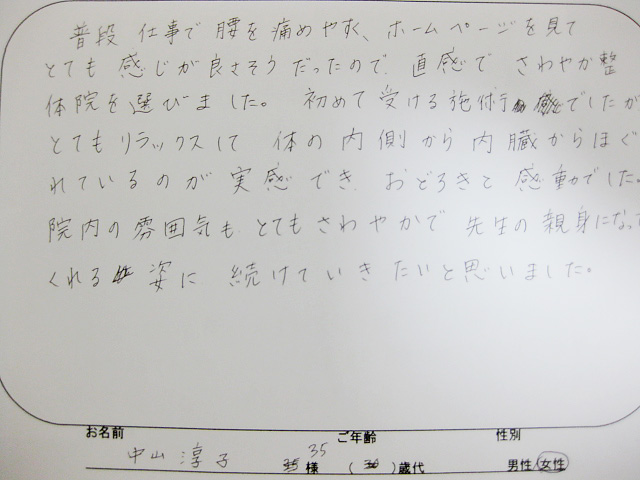 普段 仕事で 腰を 痛めやすく、ホームページを見て
とても 感じが良さそうだったので、直感で さわやか整
体院を 選びました。 初めて 受ける施術でしたが
とてもリラックスして 体の内側から内臓からほぐ
れているのが実感でき、おどろきと 感動でした。
院内の雰囲気も、とてもさわやかで 先生の親身になって
くれる 姿に 続けていきたいと思いました。
お名前 ご年齢 性別
中山 淳子 様 35 (30)歳代 男性/女性